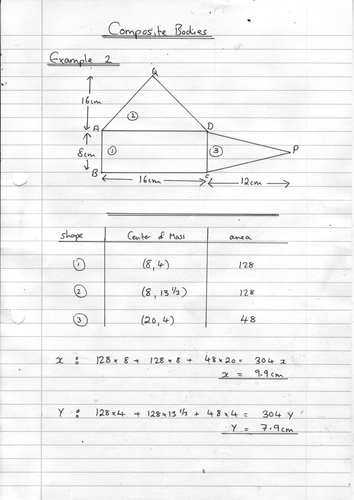 Composite Bodies
Example 2
Q
16cm
②
A
D
8cm
①
③
P
B
C
16cm
12cm
shape
Center of Mass
area
①
(8, 4)
128
②
(8, 13 1/3)
128
③
(20, 4)
48
x : 128 x 8 + 128 x 8 + 48 x 20 = 304 x
x = 9.9cm
Y : 128 x 4 + 128 x 13 1/3 + 48 x 4 = 304 Y
Y = 7.9cm